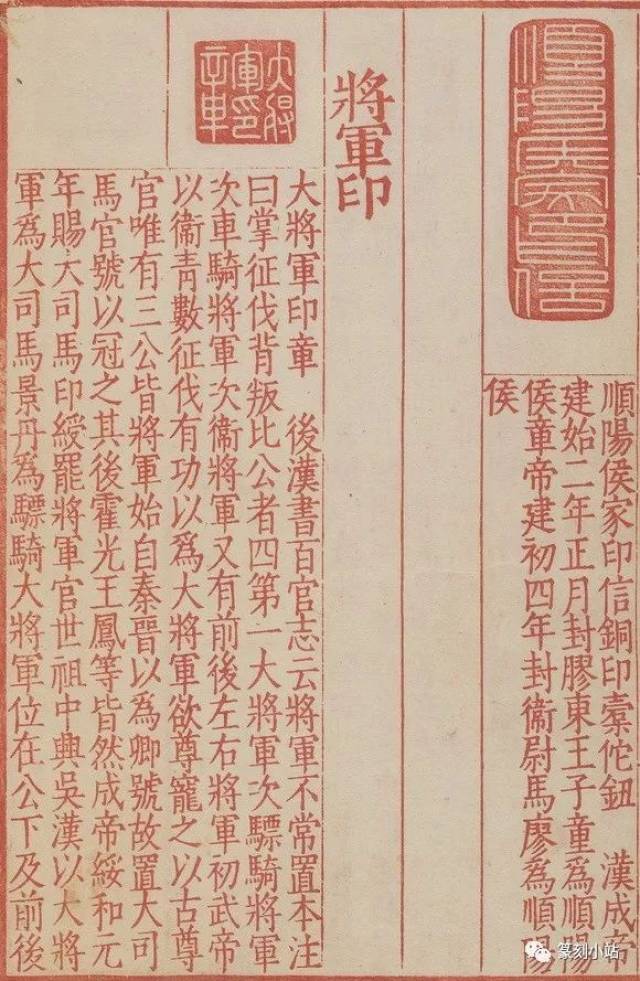 順陽侯家印信
順陽侯家印信銅印橐佗鈕　漢成帝
建始二年正月封膠東王子童爲順陽
侯章帝建初四年封衞尉馬廖爲順陽
侯
將軍印
大將軍印章
大將軍印章　後漢書百官志云將軍不常置本注
曰掌征伐背叛比公者四第一大將軍次驃騎將軍
次車騎將軍次衞將軍又有前後左右將軍初武帝
以衞青數征伐有功以爲大將軍欲尊寵之以古尊
官唯有三公皆將軍始自秦晉以爲卿號故置大司
馬官號以冠之其後霍光王鳳等皆然成帝綏和元
年賜大司馬印綬罷將軍官世祖中興吳漢以大將
軍爲大司馬景丹爲驃騎大將軍位在公下及前後
篆刻小站